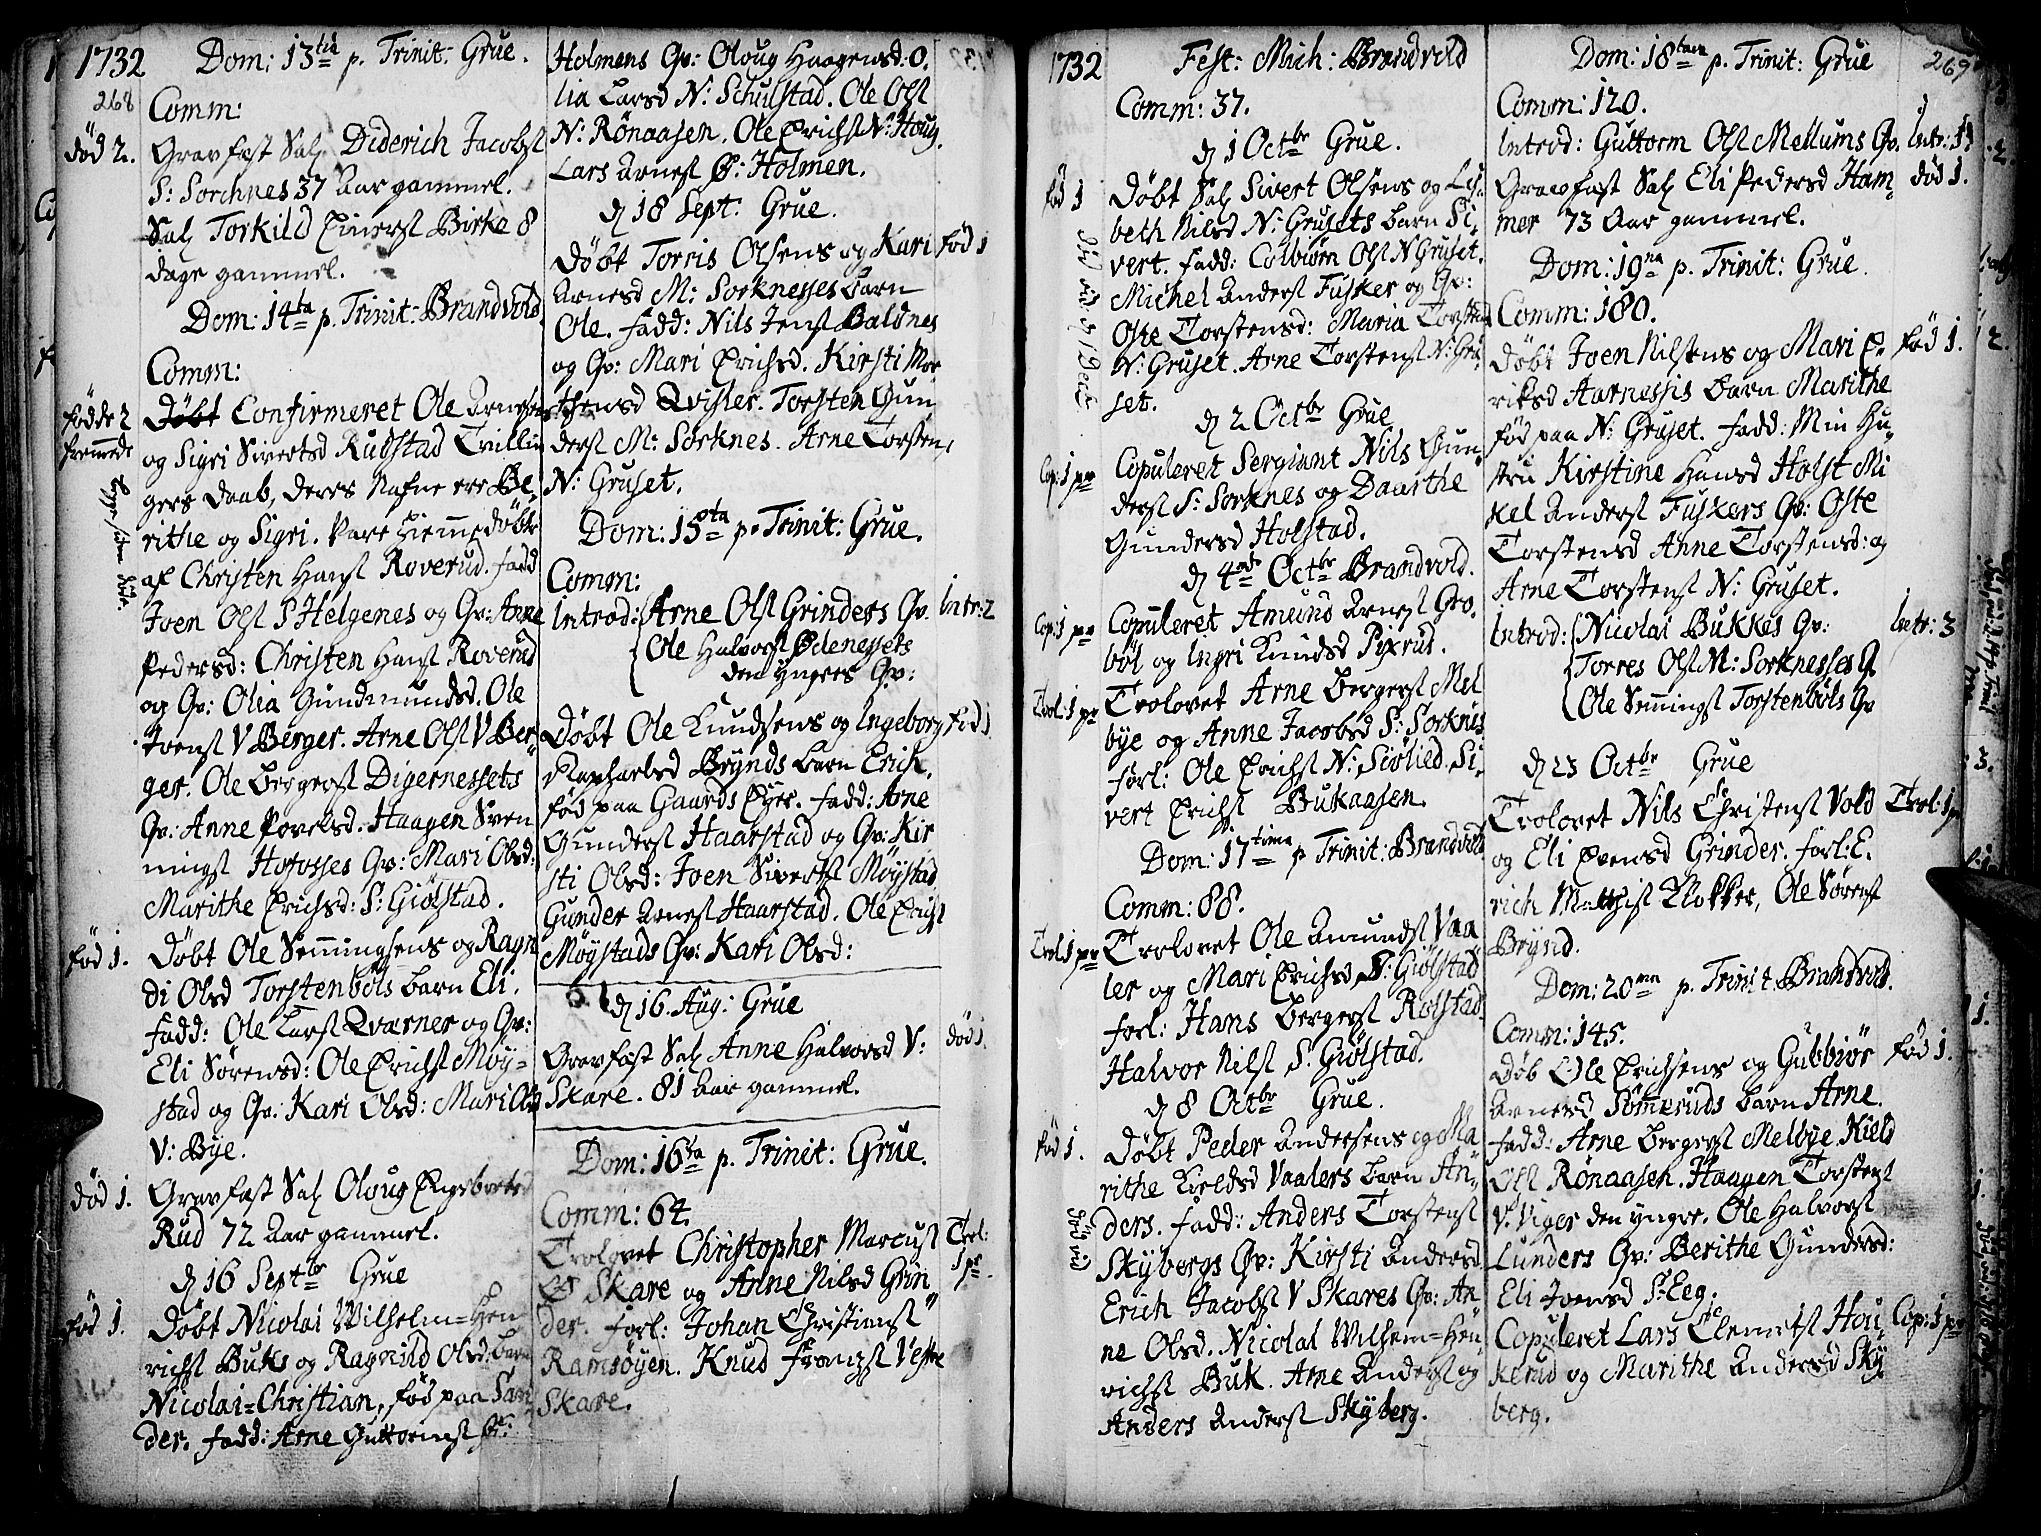 1732
268
Dom: 13tia p. Trinit: Grue.
Comm:
død 2. Gravfæst Sal. Diderich Jacobsl
S: Sorchnes 37 Aar gammel.
Sal. Torkild Einersl Birke 8
dage gammel.
Dom: 14ta p. Trinit: Brandvold.
Comm:
fødde 2 Døbt Confirmeret Ole Arnesens
fremede og Sigri Sivertsd Rudstad Trillin
gers daab, deres Nafne ere Be-
rithe og Sigri. vare hiemedøbte
af Christen Hansl Roverud. fadd
Joen Olsl S Helgenes og Qv: Anne
Pedersd: Christen Hansl Roverud
og Qv: Olia Gundmundsd. Ole
Joensl V Berger. Arne Olsl V Ber-
ger. Ole Bergersl Digernessets
Qv: Anne Povelsd. Haagen Sven
ningsl Hofosses Qv: Mari Olsd:
Marithe Erichsd: S: Giølstad.
fød 1. Døbt Ole Semmingsens og Ragn
di Olsd Torstenbøls barn Eli.
fadd: Ole Larsl Qværner og Qv:
Eli Sørensd: Ole Erichsl Møy=
stad og Qv: Kari Olsd: Mari Olsd
V: Bye.
død 1. Gravfæst Sal. Oloug Engebretsd
Rud 72 Aar gammel.
d 16 Septbr Grue
fød 1. Døbt Nicolai Wilhelm=Hen
richsl Buks og Ragnild Olsd: barn
Nicolai=Christian, fød paa San
der. fadd: Arne Guttormsl St:
Holmens Qv: Oloug Haagensd: O.
lia Larsd N: Schulstad. Ole Olsl
N: Rønaasen. Ole Erichsl N: Houg.
Lars Arnesl Ø: Holmen.
d 18 Sept: Grue.
Døbt Torris Olsens og Kari fød 1
Arnesd M: Sorknesses barn
Ole. fadd: Nils Jensl Baldnes
og Qv: Mari Erichsd. Kirsti Mor
tensd Qvisler. Torsten Gun
dersl M: Sorknes. Arne Torsten,
N: Gruset.
Dom: 15ta p. Trinit: Grue.
Comm:
Introd: Arne Olsl Grinders Qv. Intr: 2
Ole Halvorsl Ødenessets
den yngres Qv:
Døbt Ole Knudsens og Ingeborg fød 1
Raphaelsd Brynds barn Erich,
fød paa Gaards Eyer. fadd: Arne
Gundersl Haarstad og Qv: Kir
sti Olsd: Joen Siversl Møystad
Gunder Arnesl Haarstad. Ole Erichsl
Møystads Qv: Kari Olsd:
d 16. Aug: Grue
Gravfæst Sal. Anne Halvorsd V: død 1.
Skare. 81 Aar gammel.
Dom: 16ta p. Trinit: Grue.
Comm: 64.
Trolovet Christopher Marcusl Trol:
Skare og Anne Nilsd Grin 1 pr.
der. forl: Johan Christiansl
Ramsøyen. Knud Franzsl Vestre
Skare.
1732 Fest: Mich: Brandvold
Comm: 37.
d 1 Octbr Grue.
fød 1 Døbt Sal. Sivert Olsens og Lis-
beth Nilsd N: Grusets barn Si-
vert. fadd: Colbiørn Olsl N Gruset.
Michel Andersl Fusker og Qv:
Oste Torstensd: Maria Torstensd
N: Gruset. Arne Torstensl N: Gru-
set.
d 2 Octbr Grue
Cop: 1 pr Copuleret Sergiant Nils Gun
dersl S: Sorknes og Daarthe
Gundersd Holstad.
d 4de Octbr Brandvold.
Cop: 1 pr Copuleret Amund Arnesl Gro
bøl og Ingri Knudsd Pixrud.
Trol: 1 pr Trolovet Arne Bergersl Mel
bye og Anne Jacobsd S: Sorknes
forl: Ole Erichsl N: Sivlied. Si-
vert Erichsl Bukaasen.
Dom: 17tima p Trinit: Brandvold
Comm: 88.
Trol 1 pr Trolovet Ole Amundsl Vaa
ler og Mari Erichsd S: Giølstad
forl: Hans Bergersl Rolstad.
Halvor Nilsl S. Giølstad.
d 8 Octbr Grue.
fød 1. Døbt Peder Andersens og Ma
rithe Kieldsd Vaalers barn An-
ders. fadd: Anders Torstensl
Skybergs Qv: Kirsti Andersd
Erich Jacobsl V Skares Qv: An
ne Olsd. Nicolai Wilhem=Hen
richsl Buk. Arne Andersl og
Anders Andersl Skyberg.
Dom: 18tava p. Trinit: Grue 269
Comm: 120.
Introd: Guttorm Olsl Mellums Qv. Intr: 1
Gravfæst Sal. Eli Pedersd Ham- død 1.
mer 73 Aar gammel.
Dom: 19na p. Trinit: Grue.
Comm: 180.
Døbt Joen Nilsens og Mari E- fød 1.
riksd Aarnessis barn Marithe
fød paa N: Gruset. fadd: Min Hu-
stru Kirstine Hansd Holst Mi
kel Andersl Fuskers Qv: Oste
Torstensd Anne Torstensd: og
Arne Torstensl N: Gruset.
Introd: Nicolai Bukkes Qv: Intr: 3
Torres Olsl M: Sorknesses Q
Ole Semingsl Torstenbøls Qv
d 23 Octbr Grue
Trolovet Nils Christensl Vold Trol: 1 p
og Eli Evensd Grinder. forl: E.
rich Mathisl Klokker, Ole Sørensl
Brynd.
Dom: 20ma p. Trinit: Brandvold.
Comm: 145.
Døb Ole Erichsens og Gubbiør fød 1.
Arnesd Sømeruds barn Arne.
fadd: Arne Bergersl Melbye. Kield
Olsl Rønaasen. Haagen Torstensl
V. Viger den yngre. Ole Halvorsl
Lunders Qv: Berithe Gundersd:
Eli Joensd S: Eeg.
Copuleret Lars Clemetsl Hou- Cop: 1 pr
kerud og Marithe Andersd Sky
berg.